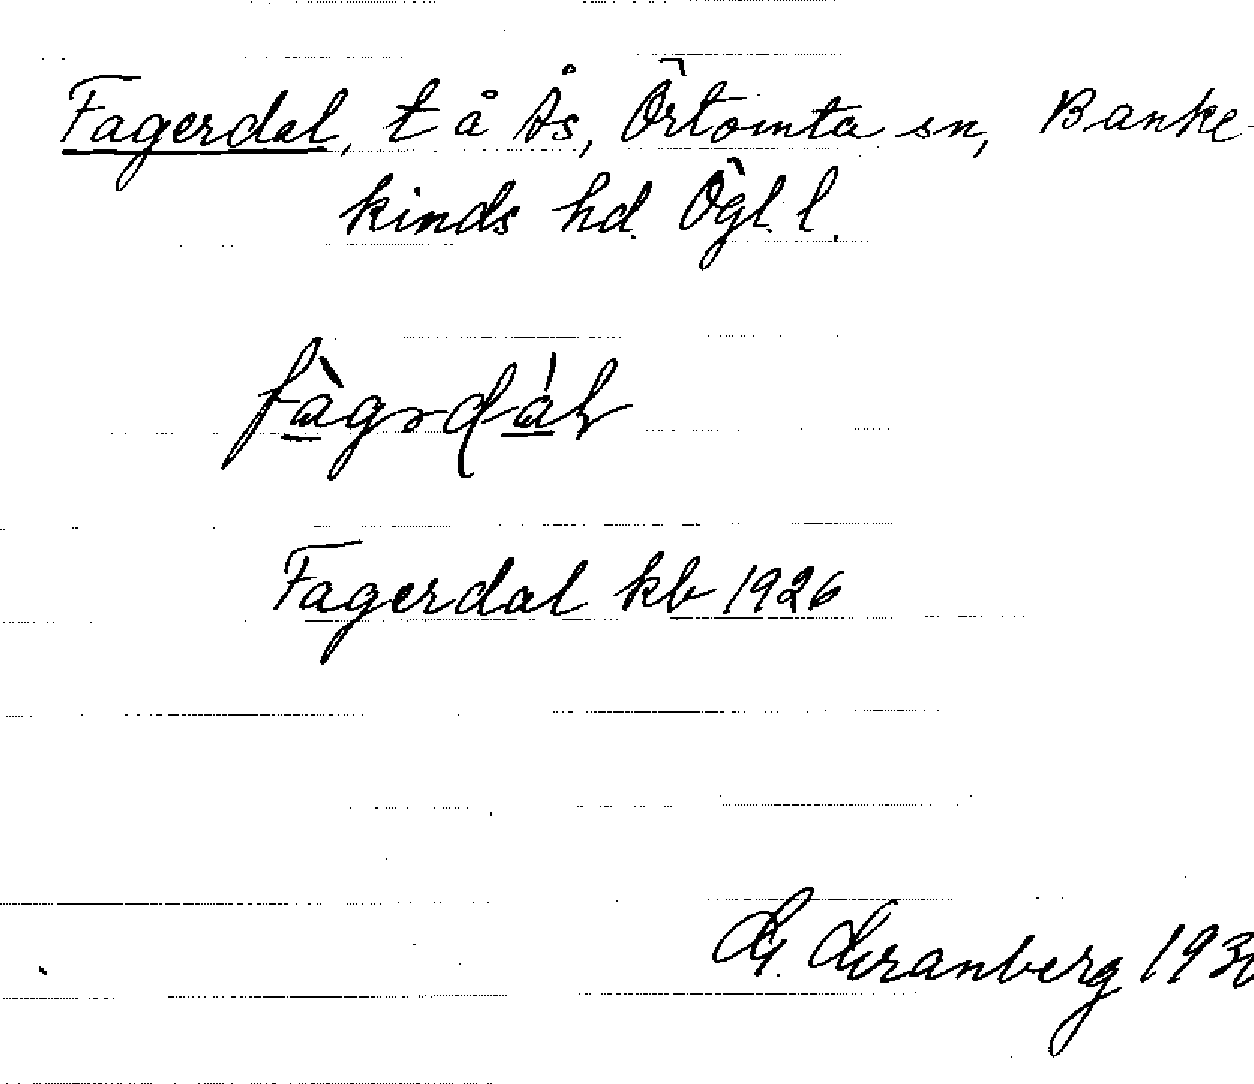 Fagerdal, t å Ås, Örtomta sn, Banke-
kinds hd. Ögl. l.
fàgərdál
Fagerdal kb 1926
G. Granberg 193